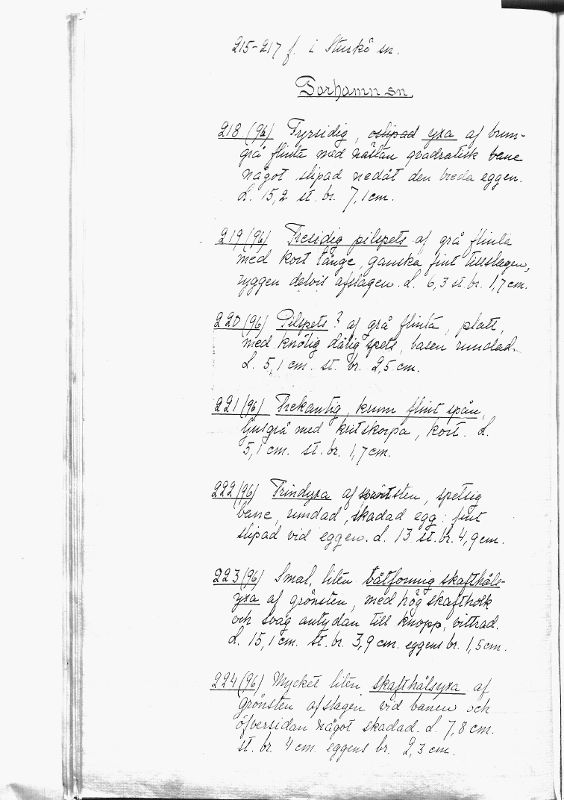 215-217 f. i Sturkö sn.
Torhamn sn.
218 (96) Fyrsidig, oslipad yxa af brun-
grå flinta med nästan quadratisk bane
något slipad nedåt den breda eggen.
L. 15,2 st. br. 7,1 cm.
219 (96) Tresidig pilspets af grå flinta
med kort tånge, ganska fint tillslagen,
ryggen delvis afslagen. L. 6,3 st br. 1,7 cm.
220 (96) Pilspets? af grå flinta, platt,
med knölig dålig spets, basen rundad.
L. 5,1 cm. st. br. 2,5 cm.
221 (96) Trekantig, krum flint spån,
ljusgrå med kritskorpa, kort. L.
5,1 cm. st. br. 1,7 cm.
222 (96) Trindyxa af svartsten, spetsig
bane, rundad, skadad egg; fint
slipad vid eggen. L. 13 st. br. 4,9 cm.
223 (96) Smal, liten båtformig skafthåls-
yxa af grönsten, med hög skaftholk
och svag antydan till knopp, vittrad.
L. 15,1 cm. st. br. 3,9 cm. eggens br. 1,5 cm.
224 (96) Mycket liten skafthålsyxa af
grönsten afslagen vid banen och
öfversidan något skadad. L. 7,8 cm.
st. br. 4 cm. eggens br. 2,3 cm.